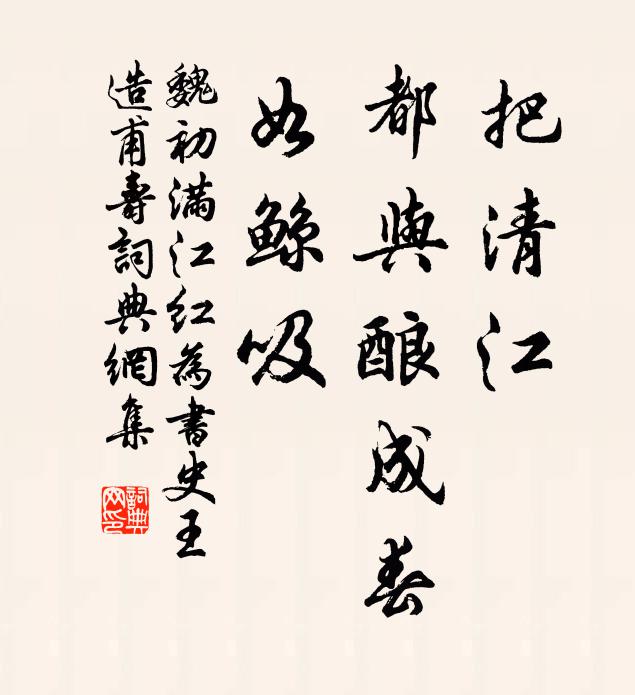 把清江
都與酿成春
如鲸吸
魏初满江红為書史王
造甫壽詞典網集
詞典网印